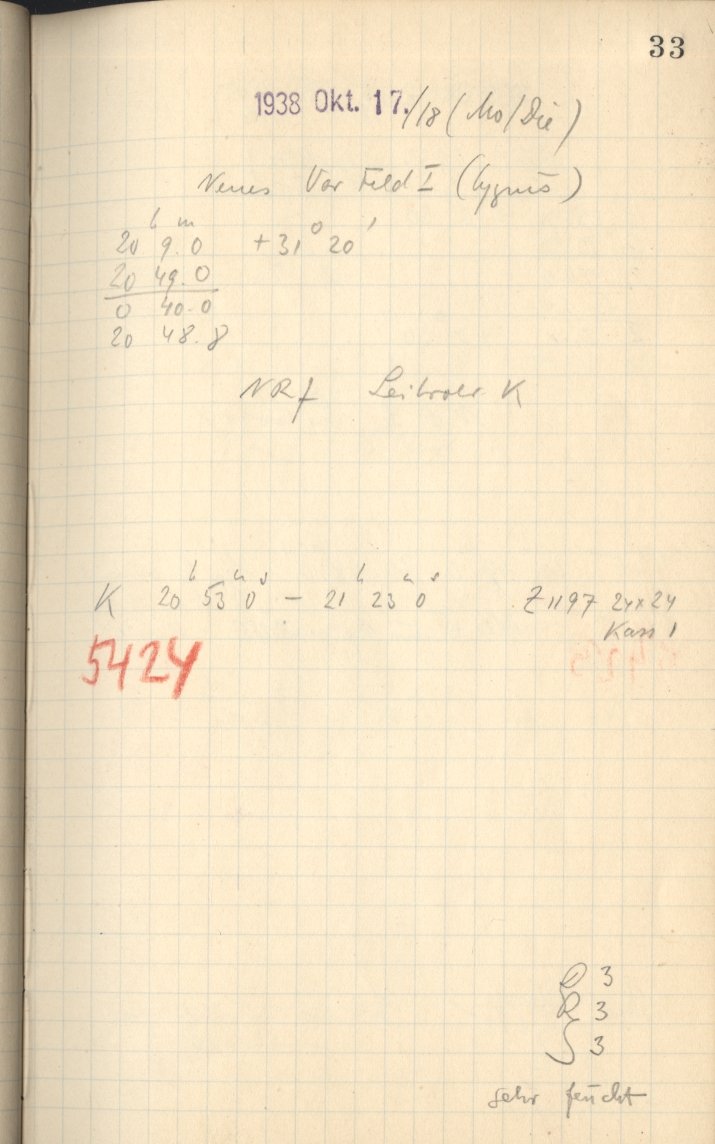 33
1938 Okt. 17./18 (Mo/Die)
Neues Var Feld I (Cygnus)
20 h 9 m.0 + 31° 20'
20 49.0
0 40.0
20 48.8
NRf Leitrohr K
K 20 h 53 m 0 s – 21 h 23 m 0 s Z 1197 24x24
Kass 1
5424
D 3
R 3
S 3
sehr feucht